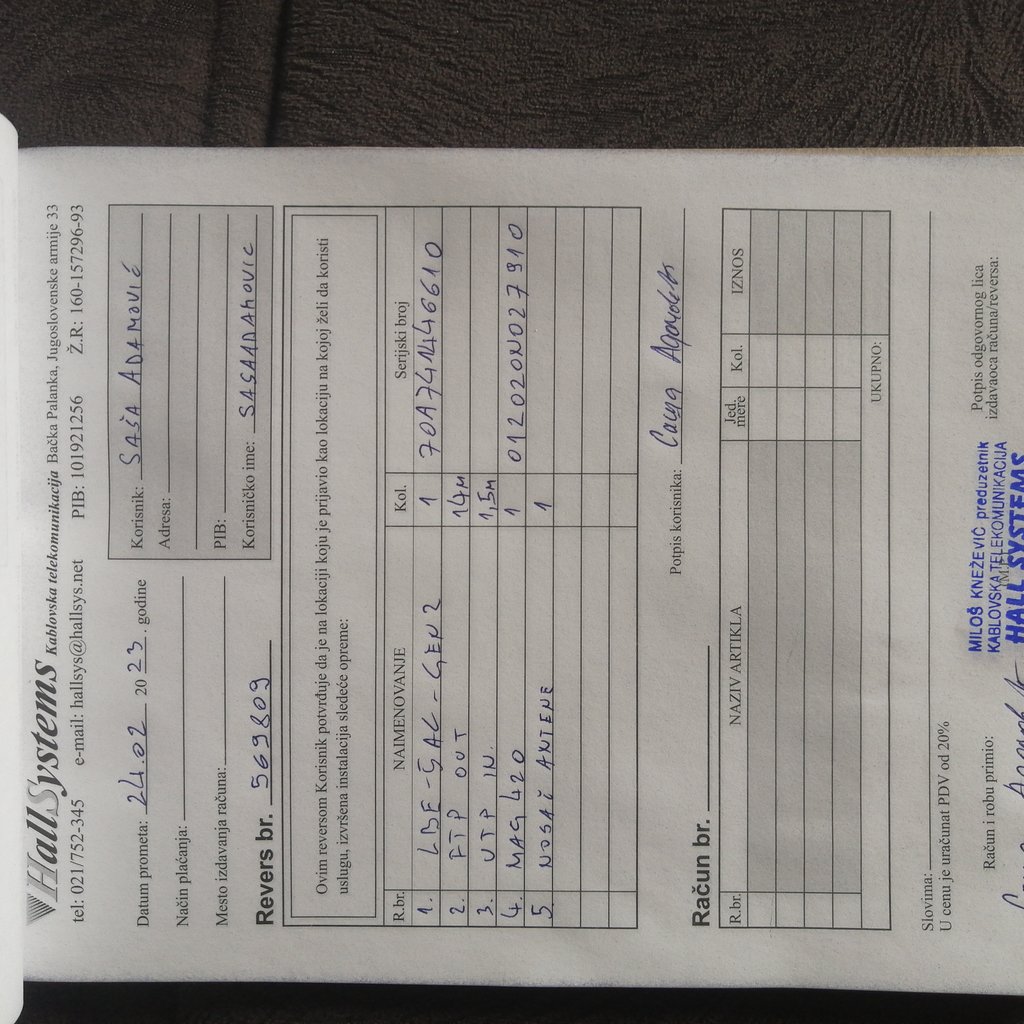 HallSystems Kablovska telekomunikacija Bačka Palanka, Jugoslovenske armije 33
tel: 021/752-345 e-mail: hallsys@hallsys.net PIB: 101921256 Ž.R: 160-157296-93
Datum prometa: 24.02 2023. godine
Način plaćanja:
Mesto izdavanja računa:
Revers br. 569809
Korisnik: SAŠA ADAMOVIĆ
Adresa:
PIB:
Korisničko ime: SASAADAMOVIC
Ovim reversom Korisnik potvrđuje da je na lokaciji koju je prijavio kao lokaciju na kojoj želi da koristi
uslugu, izvršena instalacija sledeće opreme:
R.br. NAIMENOVANJE Kol. Serijski broj
1. LBE-5AC-GEN2 1 70A741446610
2. FTP OUT 14m
3. UTP IN. 1,5m
4. MAG 420 1 012020N027910
5. NOSAČ ANTENE 1
Potpis korisnika: Саша
Račun br.
R.br. NAZIV ARTIKLA Jed. mere Kol. IZNOS
UKUPNO:
Slovima:
U cenu je uračunat PDV od 20%
Račun i robu primio:
MILOŠ KNEŽEVIĆ preduzetnik
KABLOVSKA TELEKOMUNIKACIJA
HALL SYSTEMS
Potpis odgovornog lica
izdavaoca računa/reversa: